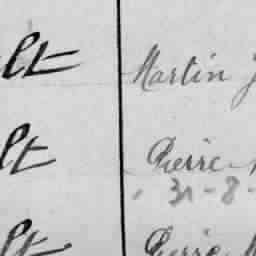 lt Martin J
lt Pierre
31-8-
lt Pierre